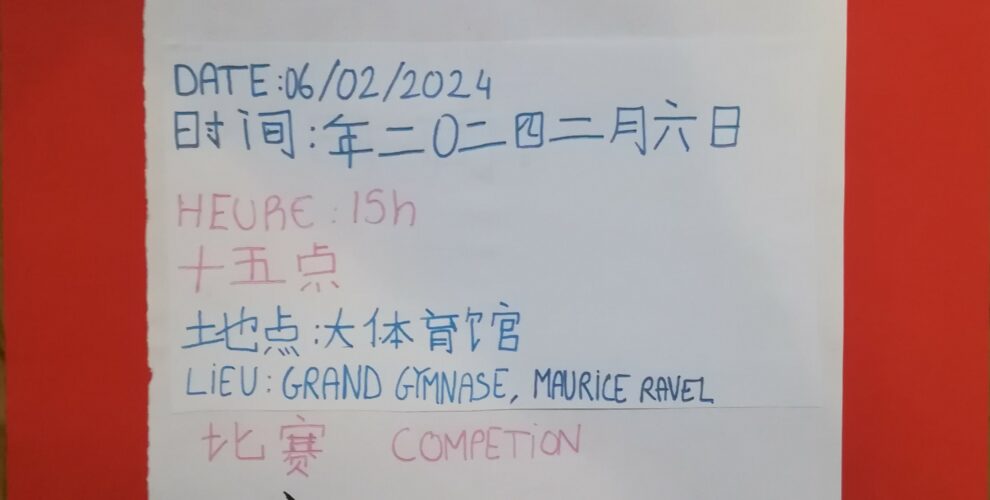 DATE:06/02/2024
时间:年二0二四二月六日
HEURE:15h
十五点
土地点:大体育馆
LIEU: GRAND GYMNASE, MAURICE RAVEL
比赛 COMPETION